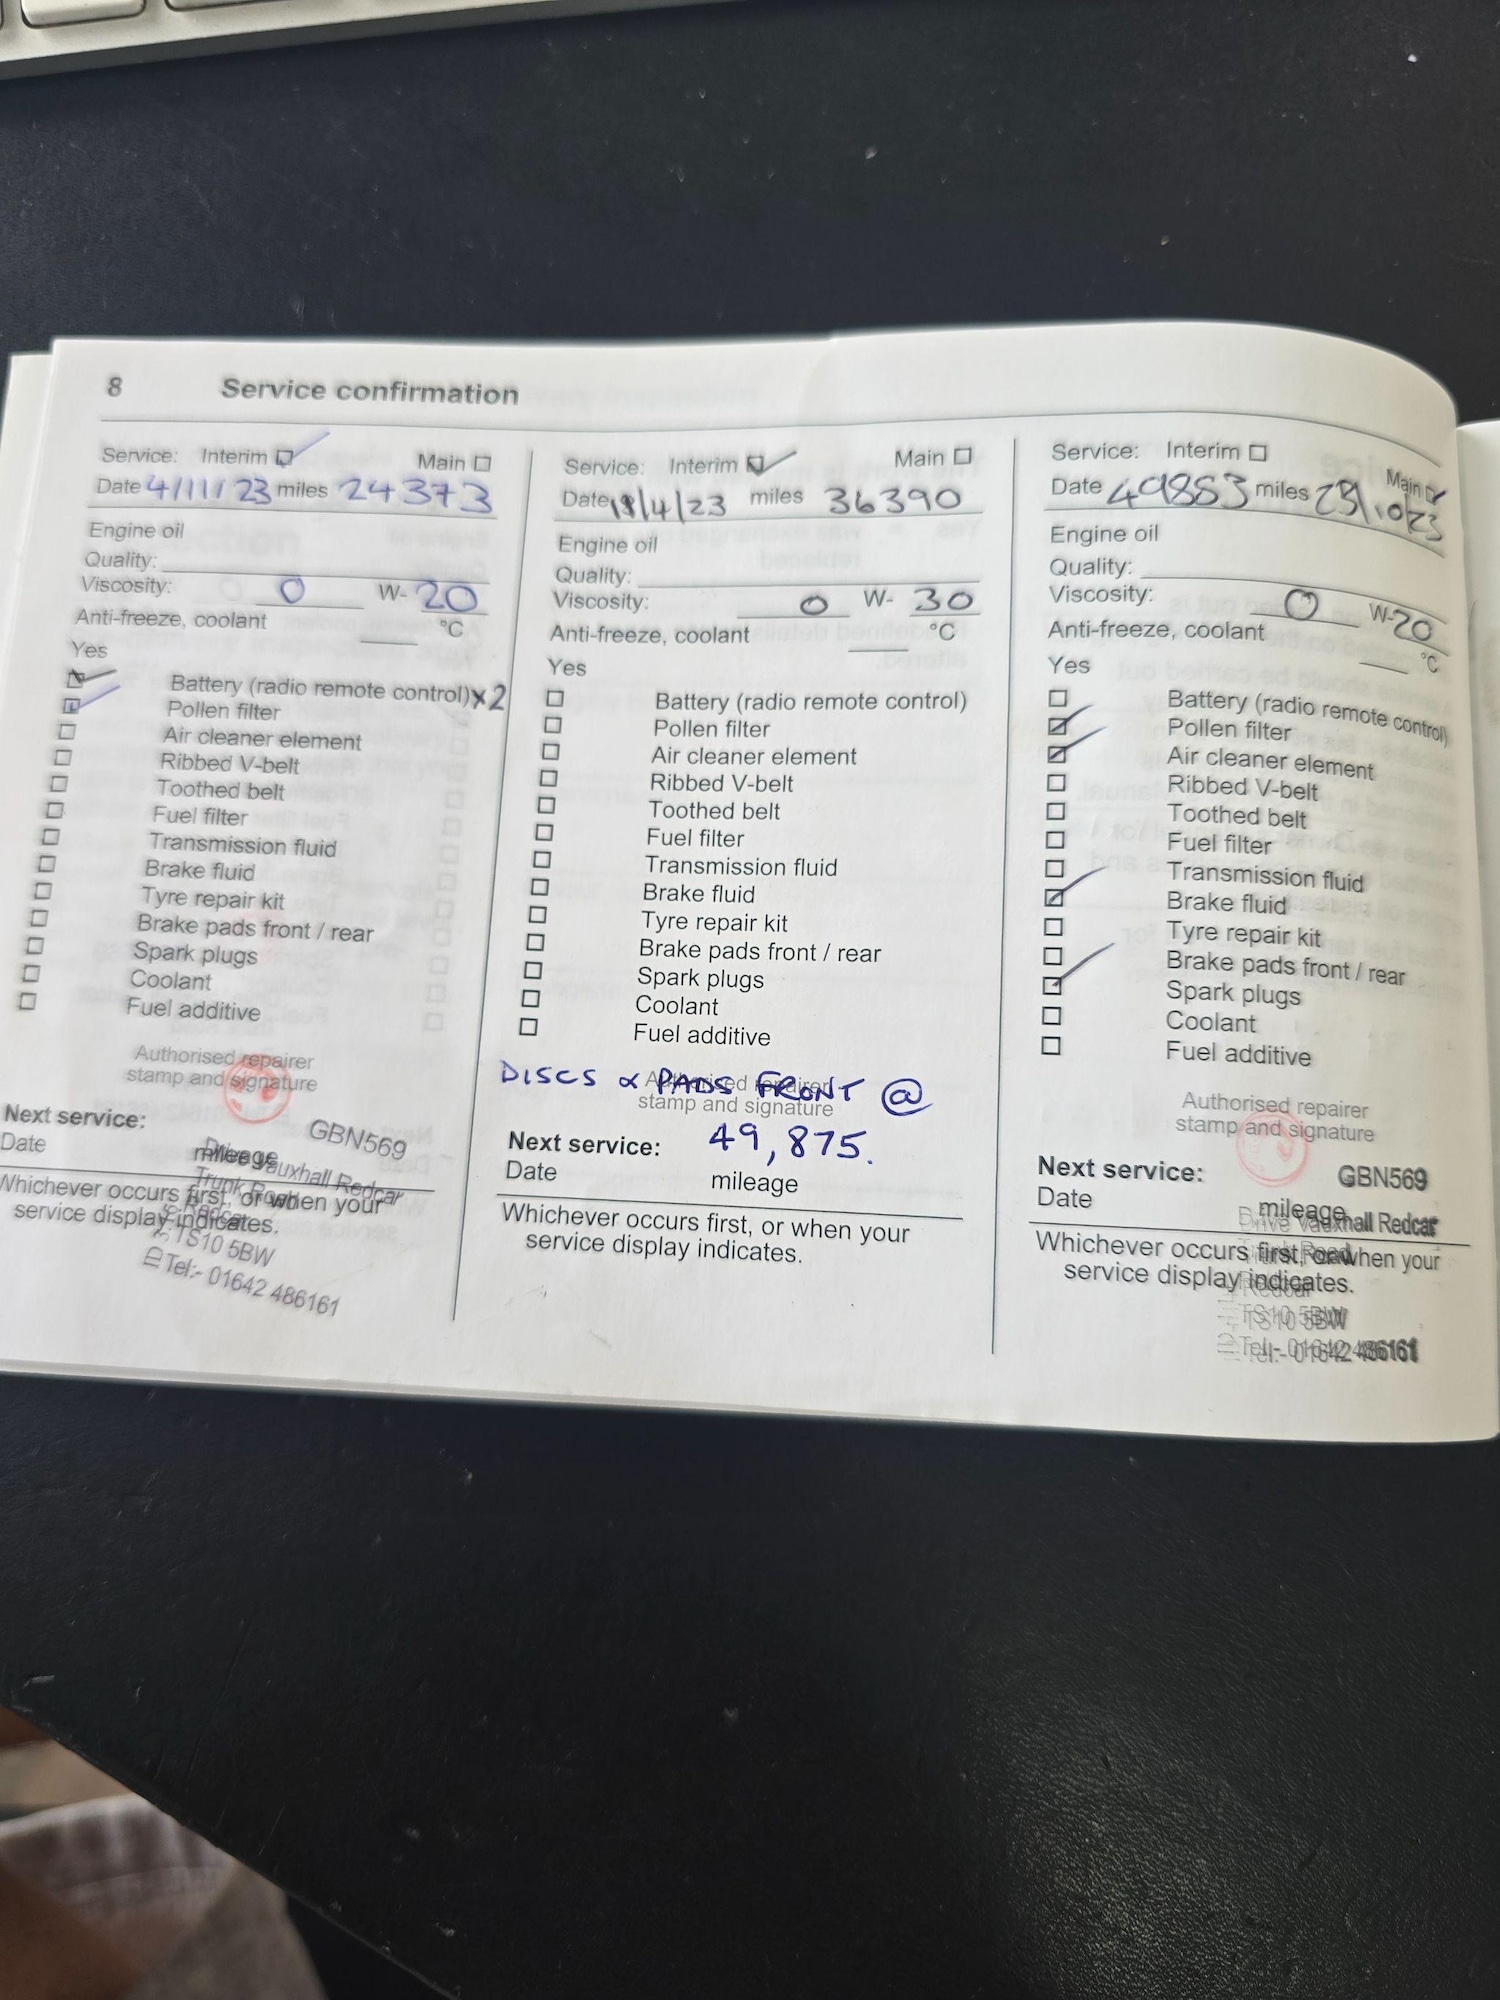 8 Service confirmation
Service: Interim Main
Date 4/11/23 miles 24373
Engine oil
Quality:
Viscosity: 0 W- 20
Anti-freeze, coolant °C
Yes
Battery (radio remote control) x2
Pollen filter
Air cleaner element
Ribbed V-belt
Toothed belt
Fuel filter
Transmission fluid
Brake fluid
Tyre repair kit
Brake pads front / rear
Spark plugs
Coolant
Fuel additive
Authorised repairer
stamp and signature
GBN569
Next service:
Date mileage
Drive Vauxhall Redcar
Trunk Road
Whichever occurs first, or when your
service display indicates.
Redcar
TS10 5BW
Tel:- 01642 486161
Service: Interim Main
Date 18/4/23 miles 36390
Engine oil
Quality:
Viscosity: 0 W- 30
Anti-freeze, coolant °C
Yes
Battery (radio remote control)
Pollen filter
Air cleaner element
Ribbed V-belt
Toothed belt
Fuel filter
Transmission fluid
Brake fluid
Tyre repair kit
Brake pads front / rear
Spark plugs
Coolant
Fuel additive
DISCS & PADS FRONT @
Authorised repairer
stamp and signature
49,875.
Next service:
Date mileage
Whichever occurs first, or when your
service display indicates.
Service: Interim Main
Date 49853 miles 23/10/23
Engine oil
Quality:
Viscosity: 0 W-20
Anti-freeze, coolant °C
Yes
Battery (radio remote control)
Pollen filter
Air cleaner element
Ribbed V-belt
Toothed belt
Fuel filter
Transmission fluid
Brake fluid
Tyre repair kit
Brake pads front / rear
Spark plugs
Coolant
Fuel additive
Authorised repairer
stamp and signature
Next service: GBN569
Date mileage
Drive Vauxhall Redcar
Trunk Road
Whichever occurs first, or when your
service display indicates.
Redcar
TS10 5BW
Tel:- 01642 486161